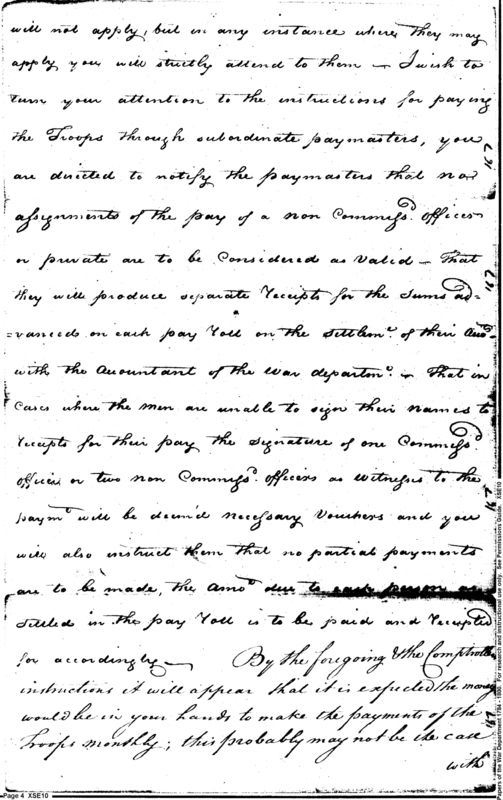 will not apply, but in any instance where they may
apply you will strictly attend to them — I wish to
turn your attention to the instructions for paying
the Troops through subordinate paymasters, you
are directed to notify the paymasters that no
assignments of the pay of a non Commissd. officer
or private are to be Considered as Valid — That
they will produce separate receipts for the Sums ad=
=vanced on each pay Roll on the Settlemt. of their Acco.
with the Accountant of the War departmt. — That in
Cases where the men are unable to sign their names to
receipts for their pay the Signature of one Commissd.
officer or two non Commissd. officers as Witnesses to the
paymt. will be deem'd necessary Vouchers and you
will also instruct them that no partial payments
are to be made, the Amot. due to each person as
Settled in the pay Roll is to be paid and receipted
for accordingly — By the foregoing & the Comptrollers
instructions it will appear that it is expected the money
would be in your hands to make the payments of the
Troops monthly; this probably may not be the case
with
Page 4 XSE10
Papers of the War Department 1784 - 1800. For research and instructional use only. See Permissions Guide. XSE10